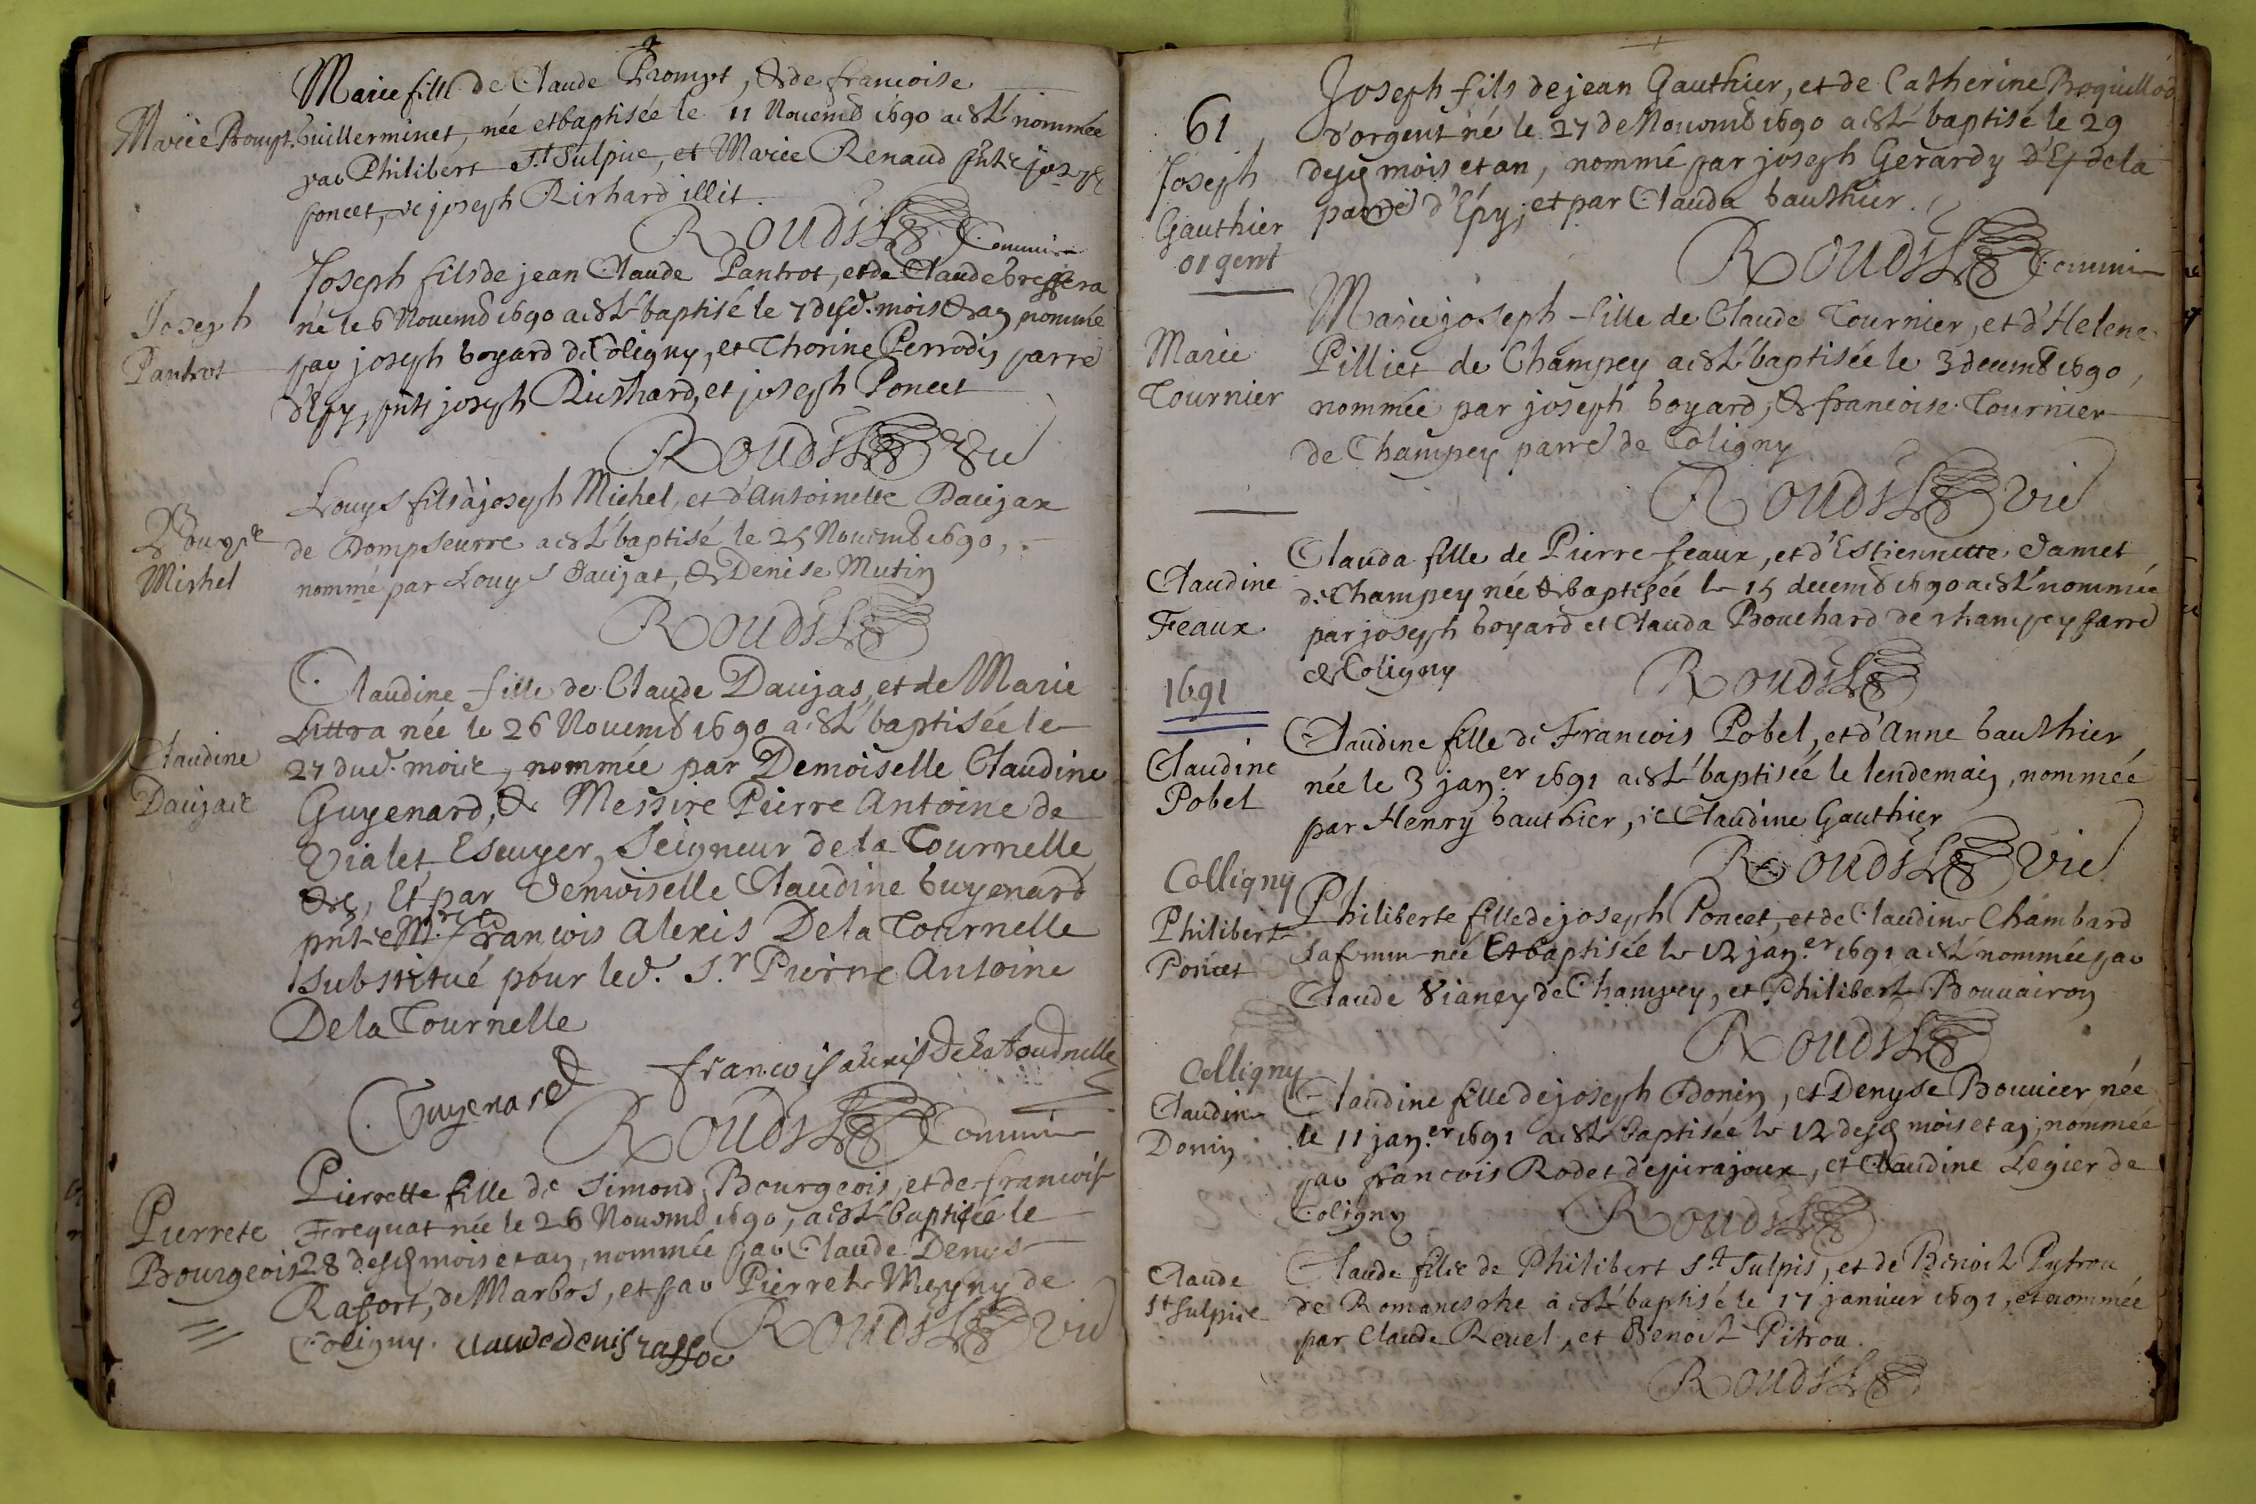 Marie fille de Claude Prompt, & de francoise
Marie Prompt. Guillerminet, née et baptisée le 11 Novemb 1690 a esté nommée
par Philibert St Sulpice, et Marie Renaud pnts joseph
poncet, et joseph Richard illit.
Roudet Commis
Joseph fils de jean Claude Pantrot, et de Claude bressera
né le 6 Novemb 1690 a esté baptisé le 7 dud. mois & an nommé
Joseph
Pantrot
par joseph boyard de Coligny, et Thorine Perrodin parre
d'Epy, pnts joseph Richard, et joseph Poncet
Roudet Vic
Louys fils à joseph Michel, et d'Antoinette Daujax
de Dompseurre a esté baptisé le 25 Novemb 1690,
Louys
Michel
nommé par Louys daujat, & Denise Mutin
Roudet
Claudine fille de Claude Daujas, et de Marie
Littra née le 26 Novemb 1690 a esté baptisée le
27 dud. mois, nommée par Demoiselle Claudine
Claudine
Daujat
Guyenard, & Messire Pierre Antoine de
Vialet Escuyer, Seigneur de la Tournelle
&c, Et par demoiselle Claudine buyenard
pnt Mre François Alexis De la Tournelle
substitué pour led. Sr Pierre Antoine
De la Tournelle
francois alexis De la tournelle
Guyenard
Roudet Commis
Pierrette fille de Simond Bourgeois, et de francoise
Frequat née le 26 Novemb 1690, a esté baptisée le
Pierrete
Bourgeois
28 desd mois et an, nommée par Claude Denys
Rafort, de Marbos, et par Pierrete Meyny de
Coligny. claude denis raffor
Roudet Vic
Joseph fils de jean Gauthier, et de Catherine Boquillod
61
d'orgent né le 27 de Novemb 1690 a esté baptisé le 29
Joseph
Gauthier
orgent
desd mois et an, nommé par joseph Gerardy d'Ep de la
parre d'Epy, et par Clauda bauthier.
Roudet Commis
Marie joseph fille de Claude Tournier, et d'Helene
Marie
Tournier
Pilliet de Champey a esté baptisée le 3 decemb 1690,
nommée par joseph boyard, & francoise Tournier
de Champey parre de Coligny
Roudet Vic
Clauda fille de Pierre feaux, et d'Estiennette damet
Claudine
Feaux
de Champey née & baptisée le 15 decemb 1690 a esté nommée
par joseph boyard et Clauda Bouchard de champey parre
de Coligny
Roudet
1691
Claudine fille de Francois Pobel, et d'Anne bauthier
Claudine
Pobel
née le 3 jan.er 1691 a esté baptisée le lendemain, nommée
par Henry bauthier, et Claudine Gauthier
Roudet Vic
Colligny
Philiberte fille de joseph Poncet, et de Claudine Chambard
Philiberte
Poncet
sa femme née Et baptisée le 12 jan.er 1691 a esté nommée par
Claude Vianey de Champey, et Philibert Bouvairon
Roudet
Colligny
Claudine fille de joseph Donin, et Denyse Bouvier née
Claudine
Donin
le 11 jan.er 1691 a esté baptisée le 12 desd mois et an, nommée
par francois Rodet d'epirajoux, et Claudine Legier de
Coligny
Roudet
Claude filie de Philibert St Sulpis, et de Benoit Pytrou
Claude
St Sulpice
de Romanesche a esté baptisé le 17 janvier 1691, et nommée
par Claude Revel, et Benoit Pitrou.
Roudet